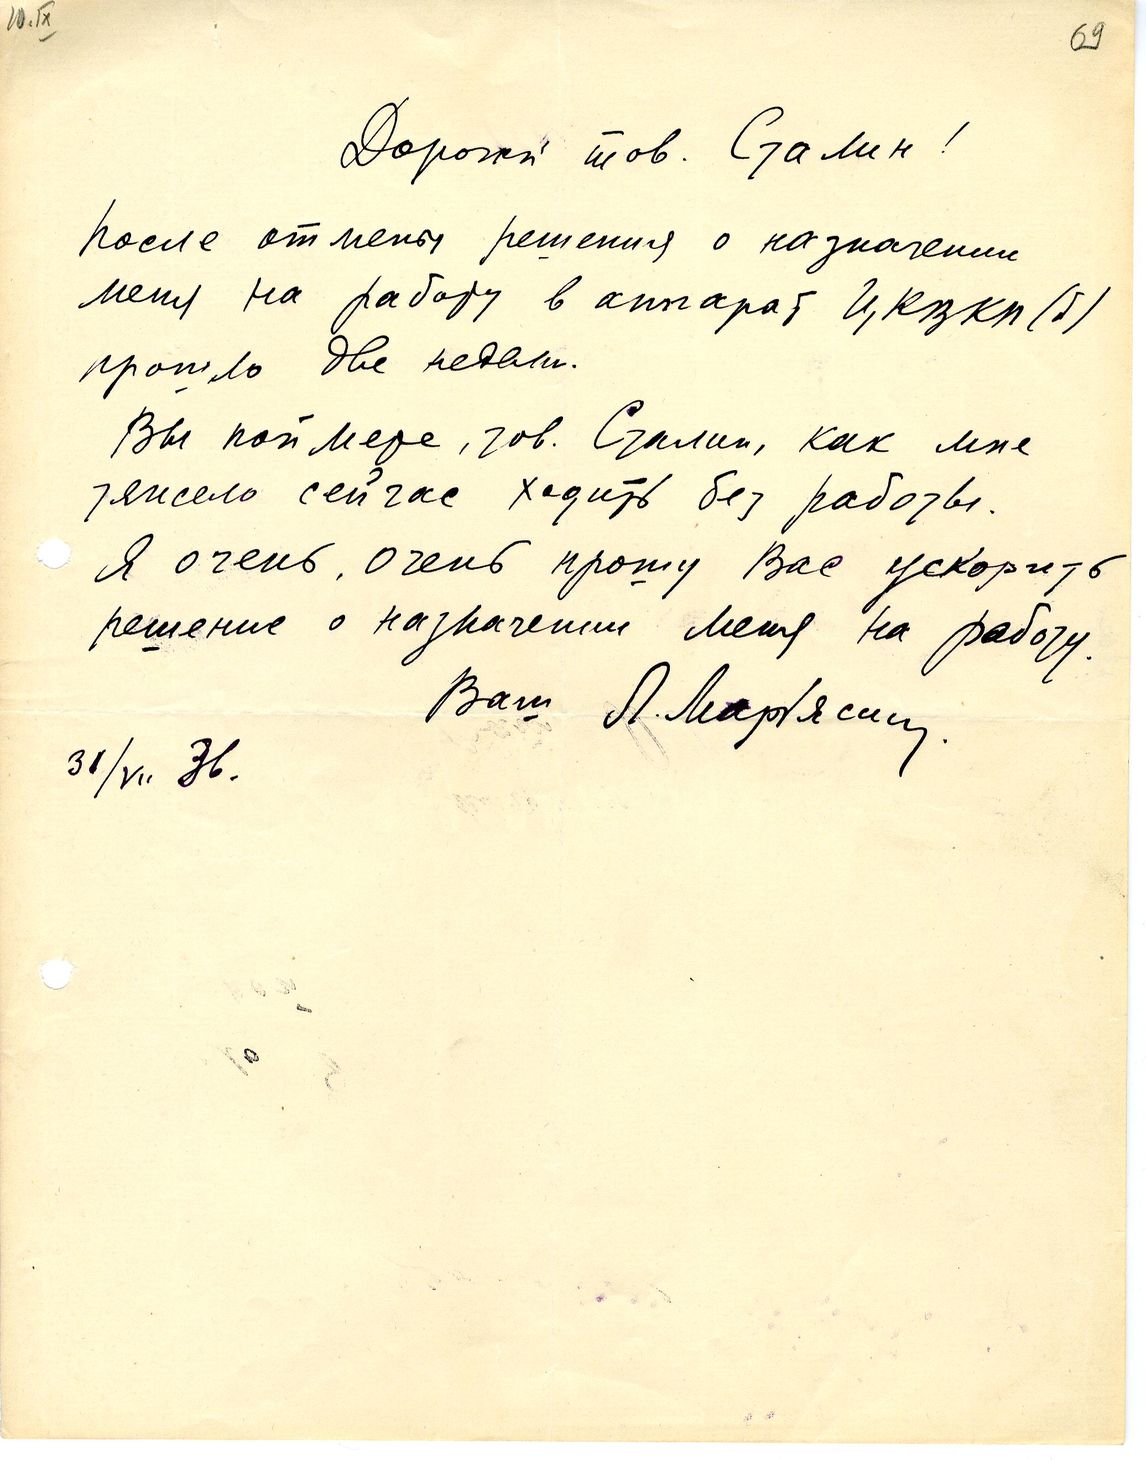 10.IX
69
Дорогой тов. Сталин!
После отмены решения о назначении
меня на работу в аппарат ЦКВКП(б)
прошло две недели.
Вы поймете, тов. Сталин, как мне
тяжело сейчас ходить без работы.
Я очень, очень прошу Вас ускорить
решение о назначении меня на работу.
Ваш Л. Марьясин.
31/VII 36.